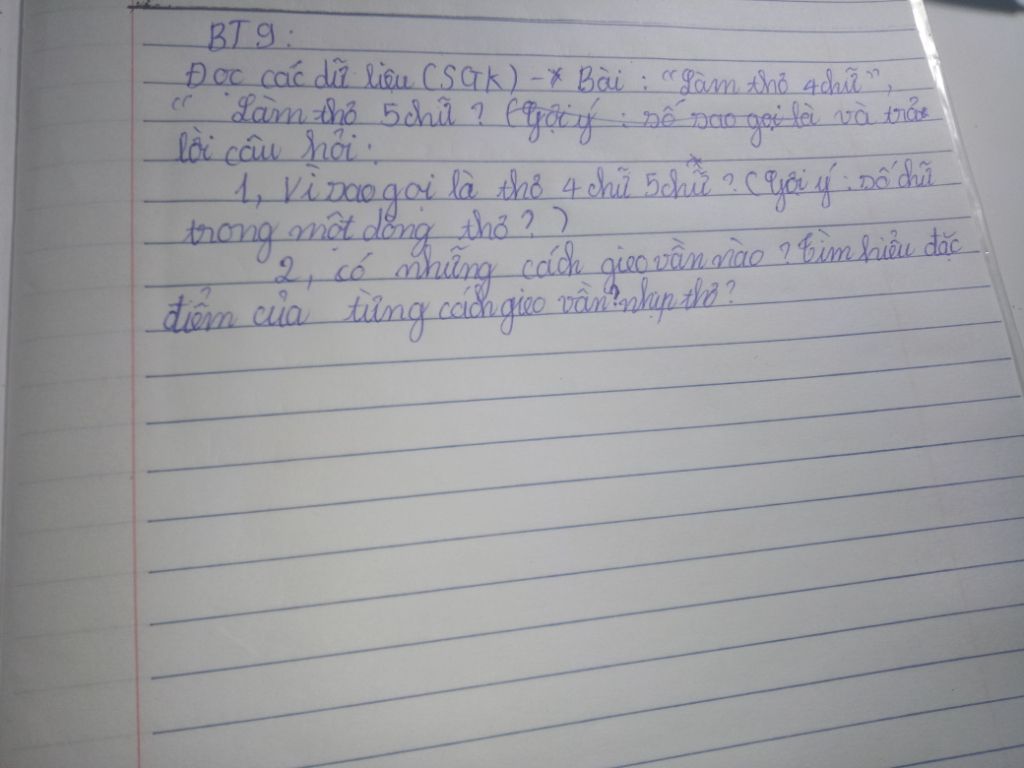 BT9:
Đọc các dữ liệu (SGK) -* Bài: "Làm thơ 4 chữ",
" Làm thơ 5 chữ? (Gợi ý: số sao gọi là và trả
lời câu hỏi:
1, Vì sao gọi là thơ 4 chữ 5 chữ? (Gợi ý: số chữ
trong một dòng thơ?)
2, có những cách gieo vần nào? Tìm hiểu đặc
điểm của từng cách gieo vần? nhịp thơ?